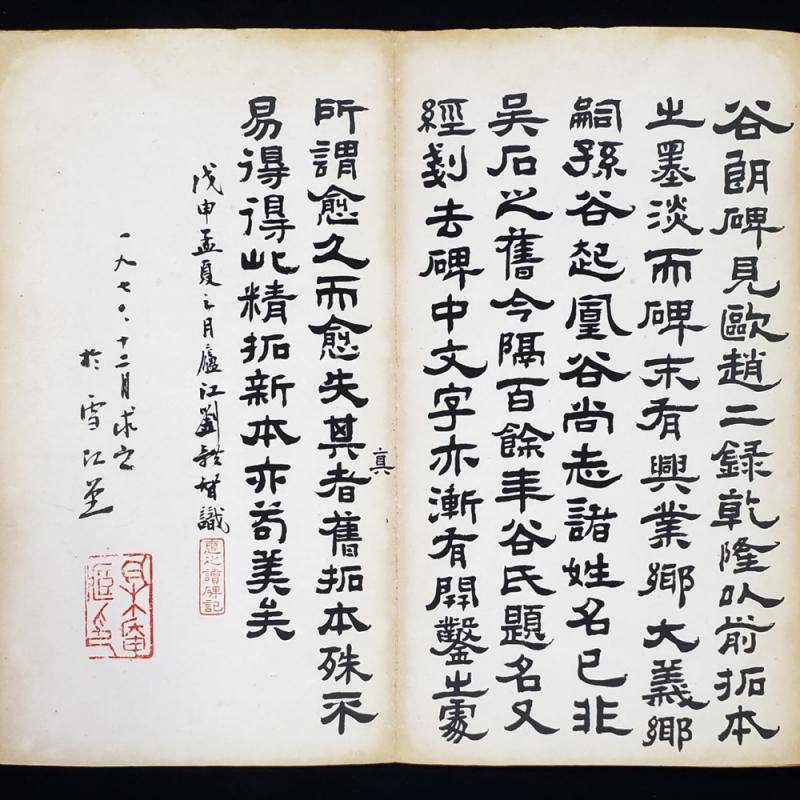 谷朗碑見歐趙二錄乾隆以前拓本
之墨淡而碑末有興業鄉大義鄉
嗣孫谷起凰谷尚志諸姓名已非
吳石之舊今隔百餘年谷氏題名又
經剗去碑中文字亦漸有開鑿之處
所謂愈久而愈失其者舊拓本殊不
真
易得得此精拓新本亦苟美矣
戊申孟夏之月廬江劉體智識
惠之讀碑記
一九七〇、十二月求之
於雪江堂